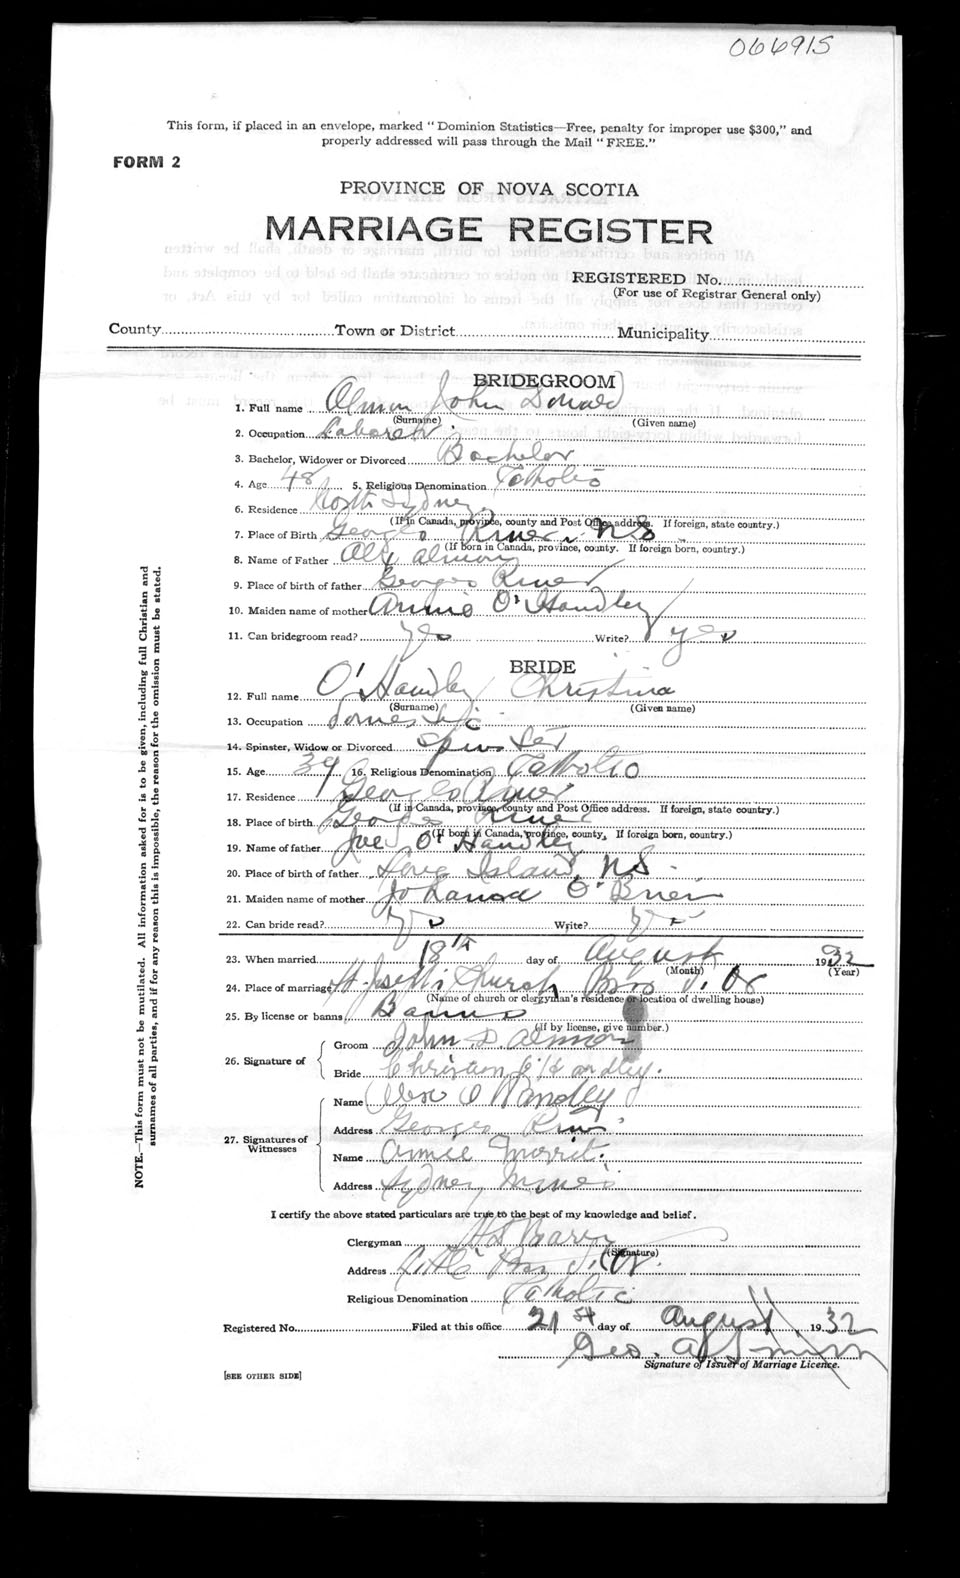 066915
This form, if placed in an envelope, marked "Dominion Statistics—Free, penalty for improper use $300," and
properly addressed will pass through the Mail "FREE."
FORM 2
PROVINCE OF NOVA SCOTIA
MARRIAGE REGISTER
REGISTERED No.
(For use of Registrar General only)
County Town or District Municipality
BRIDEGROOM
1. Full name Almon John Donald
(Surname) (Given name)
2. Occupation Laborer
3. Bachelor, Widower or Divorced Bachelor
4. Age 48 5. Religious Denomination Catholic
6. Residence North Sydney
(If in Canada, province, county and Post Office address. If foreign, state country.)
7. Place of Birth Georges River NS
(If born in Canada, province, county. If foreign born, country.)
8. Name of Father Almon
9. Place of birth of father Georges River
10. Maiden name of mother Annie O'Handley
11. Can bridegroom read? yes Write? yes
BRIDE
12. Full name O'Handley Christina
(Surname) (Given name)
13. Occupation Domestic
14. Spinster, Widow or Divorced Spinster
15. Age 39 16. Religious Denomination Catholic
17. Residence Georges River
(If in Canada, province, county and Post Office address. If foreign, state country.)
18. Place of birth Georges River
(If born in Canada, province, county. If foreign born, country.)
19. Name of father Joe O'Handley
20. Place of birth of father Long Island, NS
21. Maiden name of mother Johanna O'Brien
22. Can bride read? Yes Write? Yes
23. When married 18th day of August 1932
(Month) (Year)
24. Place of marriage St. Joseph's Church Bras d'Or
(Name of church or clergyman's residence or location of dwelling house)
25. By license or banns Banns
(If by license, give number.)
26. Signature of
Groom John D. Almon
Bride Christina O'Handley.
27. Signatures of Witnesses
Name O'Handley
Address Georges River
Name Annie Merrit
Address Sydney Mines
I certify the above stated particulars are true to the best of my knowledge and belief.
Clergyman
(Signature)
Address Little Bras d'Or
Religious Denomination Catholic
Registered No. Filed at this office 21st day of August 1932
Geo. A. Smith
Signature of Issuer of Marriage Licence.
[SEE OTHER SIDE]
NOTE.—This form must not be mutilated. All information asked for is to be given, including full Christian and
surnames of all parties, and if for any reason this is impossible, the reason for the omission must be stated.